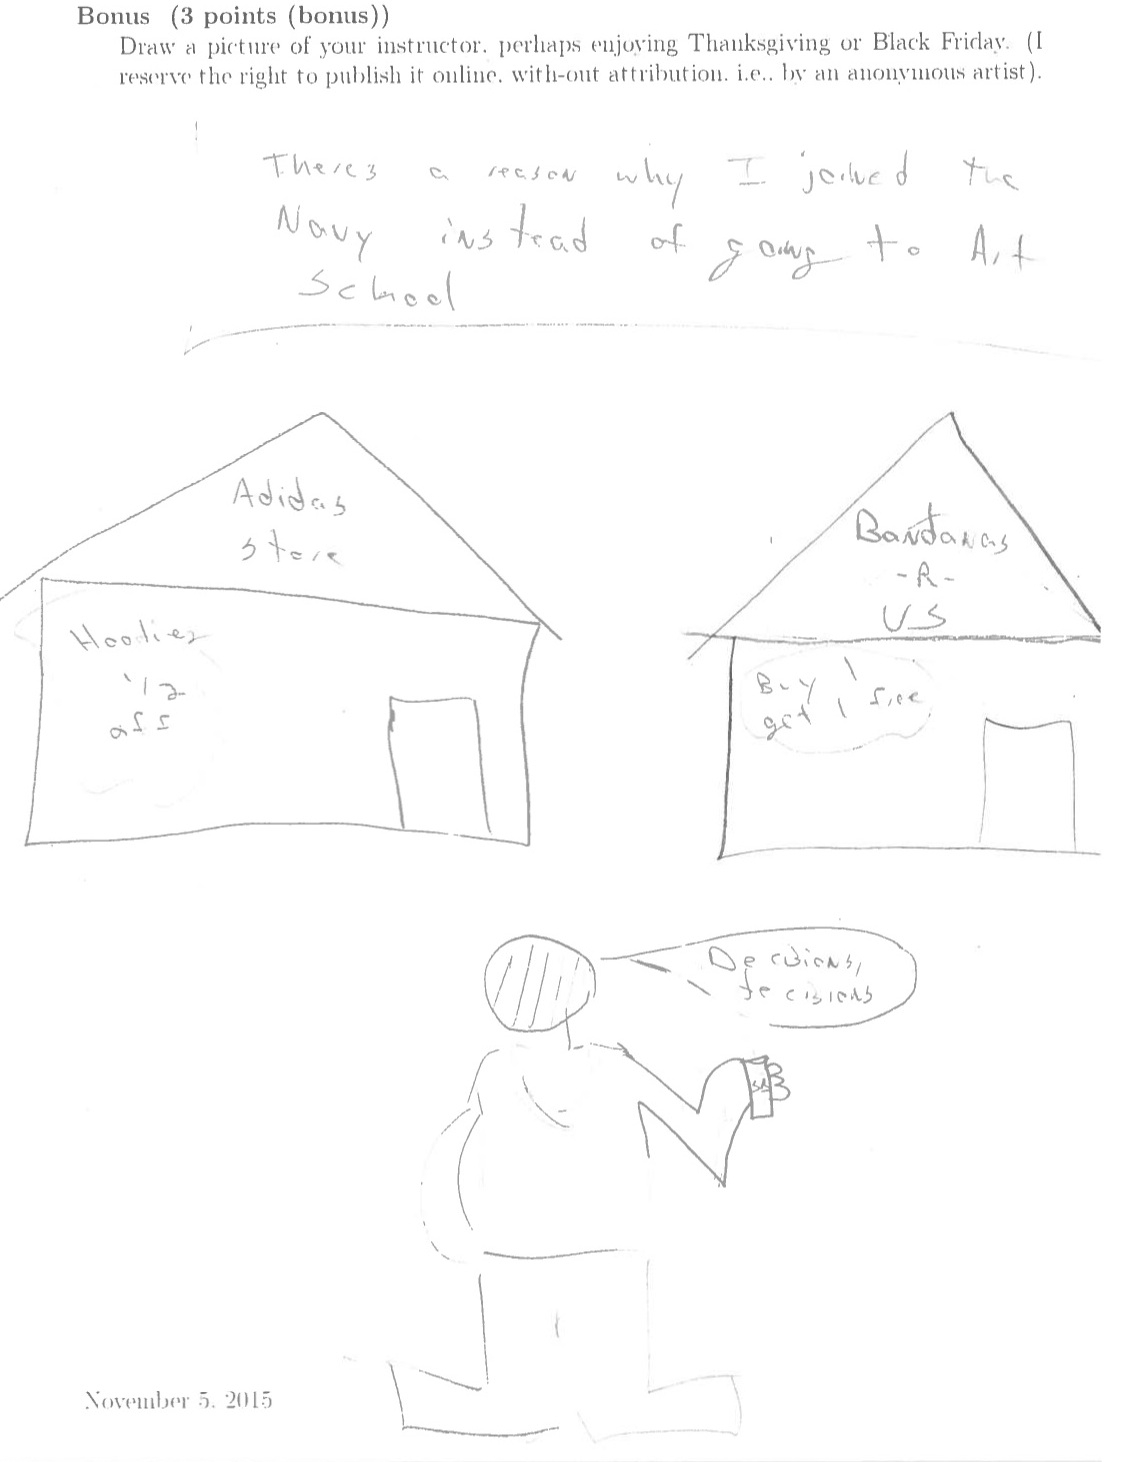 Bonus (3 points (bonus))
Draw a picture of your instructor, perhaps enjoying Thanksgiving or Black Friday. (I
reserve the right to publish it online, with-out attribution, i.e., by an anonymous artist).
Theres a reason why I joined the
Navy instead of going to Art
School
Adidas
store
Hoodies
1/2
off
Bandanas
-R-
US
Buy 1
get 1 free
Decisions,
decisions
November 5, 2015